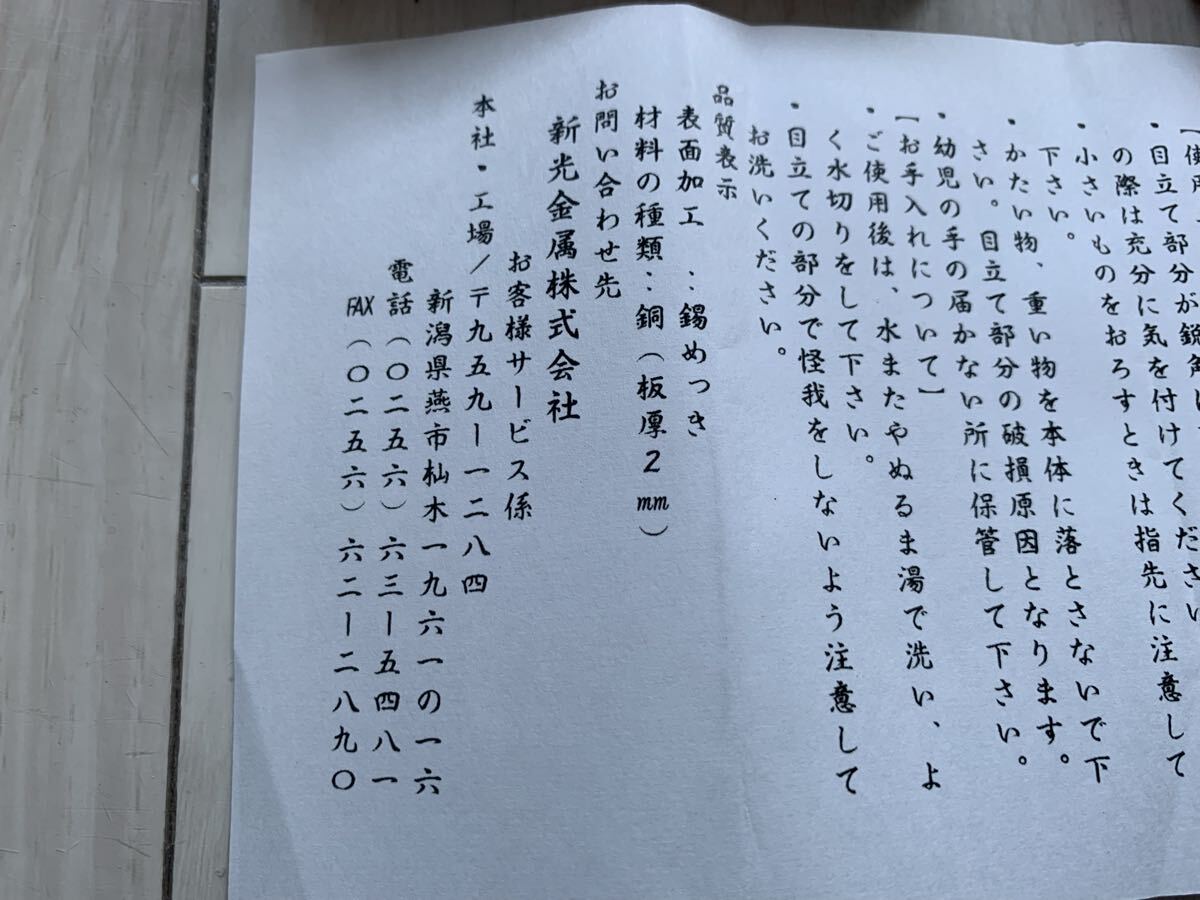 ・目立て部分が鋭角
の際は充分に気を付けてください
・小さいものをおろすときは指先に注意して
下さい。
・かたい物、重い物を本体に落とさないで下
さい。目立て部分の破損原因となります。
・幼児の手の届かない所に保管して下さい。
【お手入れについて】
・ご使用後は、水またやぬるま湯で洗い、よ
く水切りをして下さい。
・目立ての部分で怪我をしないよう注意して
お洗いください。
品質表示
表面加工：錫めっき
材料の種類：銅（板厚２㎜）
お問い合わせ先
新光金属株式会社
お客様サービス係
本社・工場／〒九五九ー一二八四
新潟県燕市杣木一九六一の一六
電話（〇二五六）六三ー五四八一
FAX（〇二五六）六二ー二八九〇